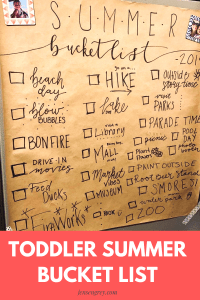 SUMMER
bucket list
-201
beach
day
blow
BUBBLES
BONFIRE
DRIVE-IN
movies
Feed
Ducks
FireWorks
go on a
HIKE
lake
visit a
Library
MALL
Market
vibes
MUSEUM
OUTSIDE
story time
visit
PARKS
PARADE TIME
picnic
POOL
DAY
Plant a
flower
PAINT OUTSIDE
Root beer stand
SMORES
water park
ZOO
TODDLER SUMMER
BUCKET LIST